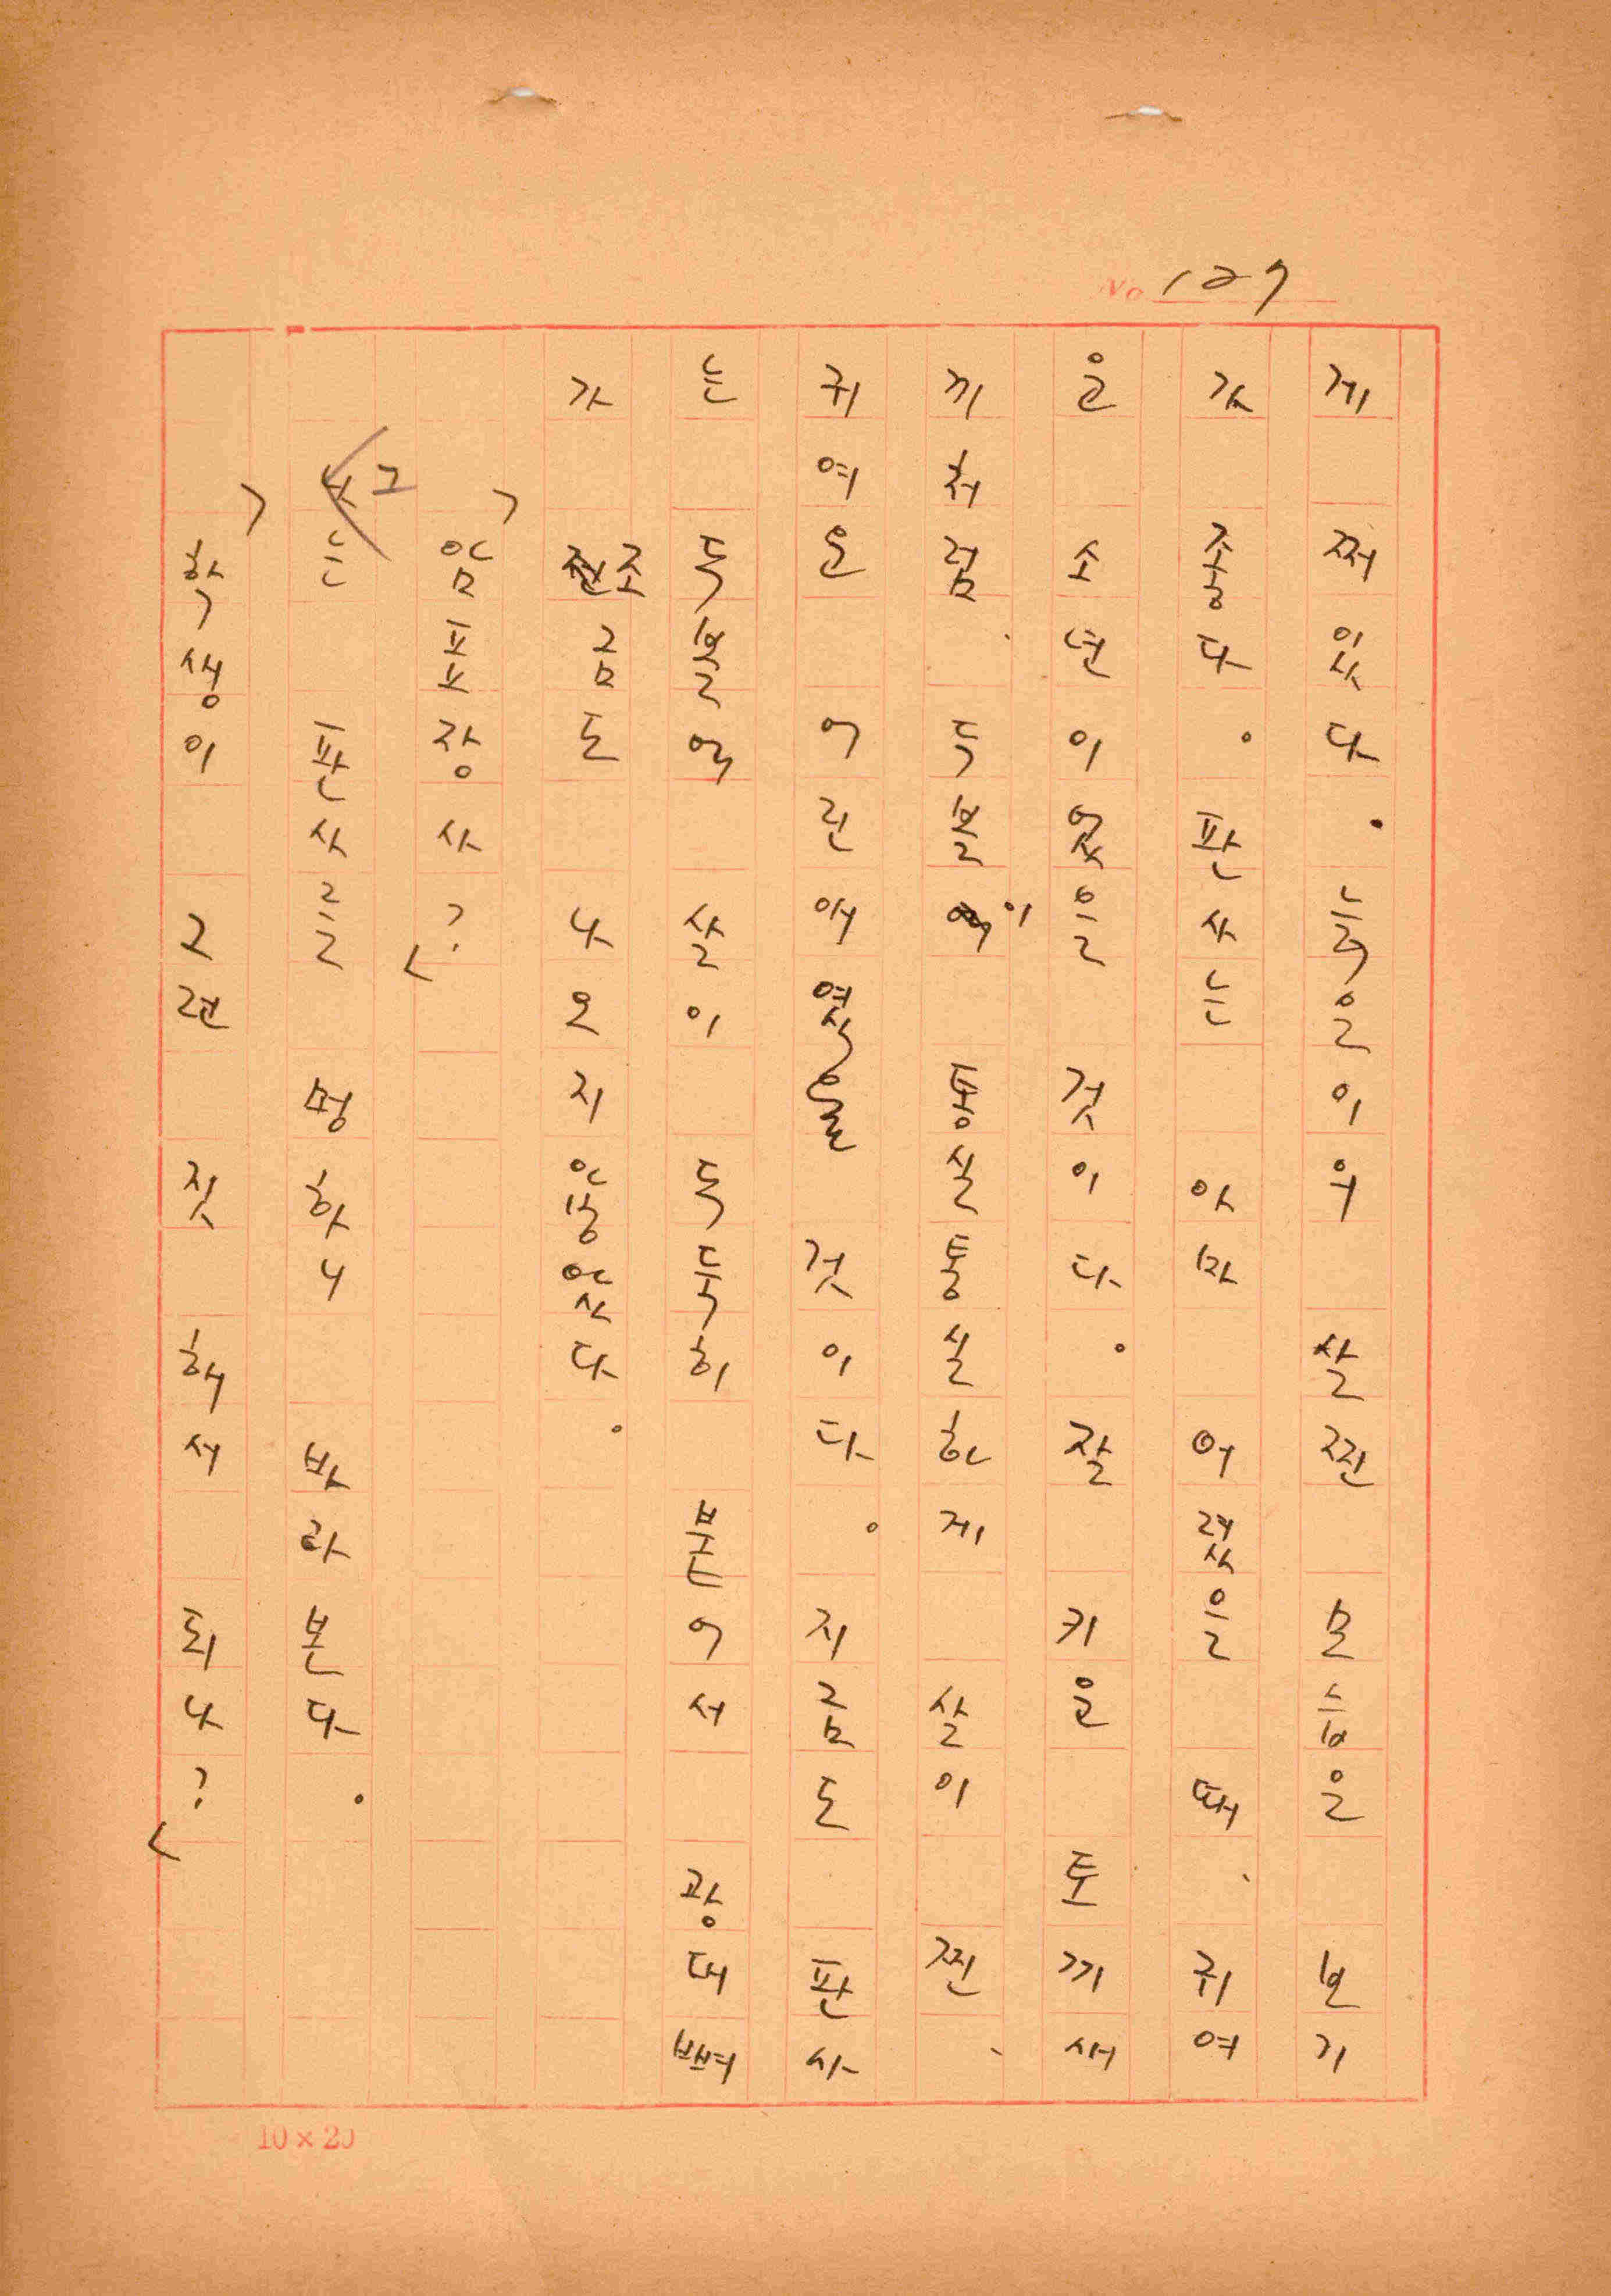 No 127
게 쩌있다. 늙은이위 살찐 모습은 보기
가 좋다. 판사는 아마 어렸을 때、귀여
운 소년이었을 것이다. 잘 키운 토끼새
끼처럼、둑볼이 통실통실하게 살이 찐、
귀여운 어린애였을 것이다. 지금도 판사
는 둑볼에 살이 둑둑히 붙어서 광대뼈
가 조금도 나오지 않았다.
「암표장사?」
그는 판사를 멍하니 바라본다.
「학생이 그런 짓 해서 되나?」
10×20